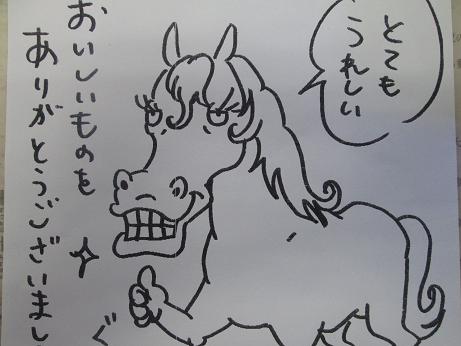 とても
うれしい
おいしいものを
ありがとうございまし
ぐ